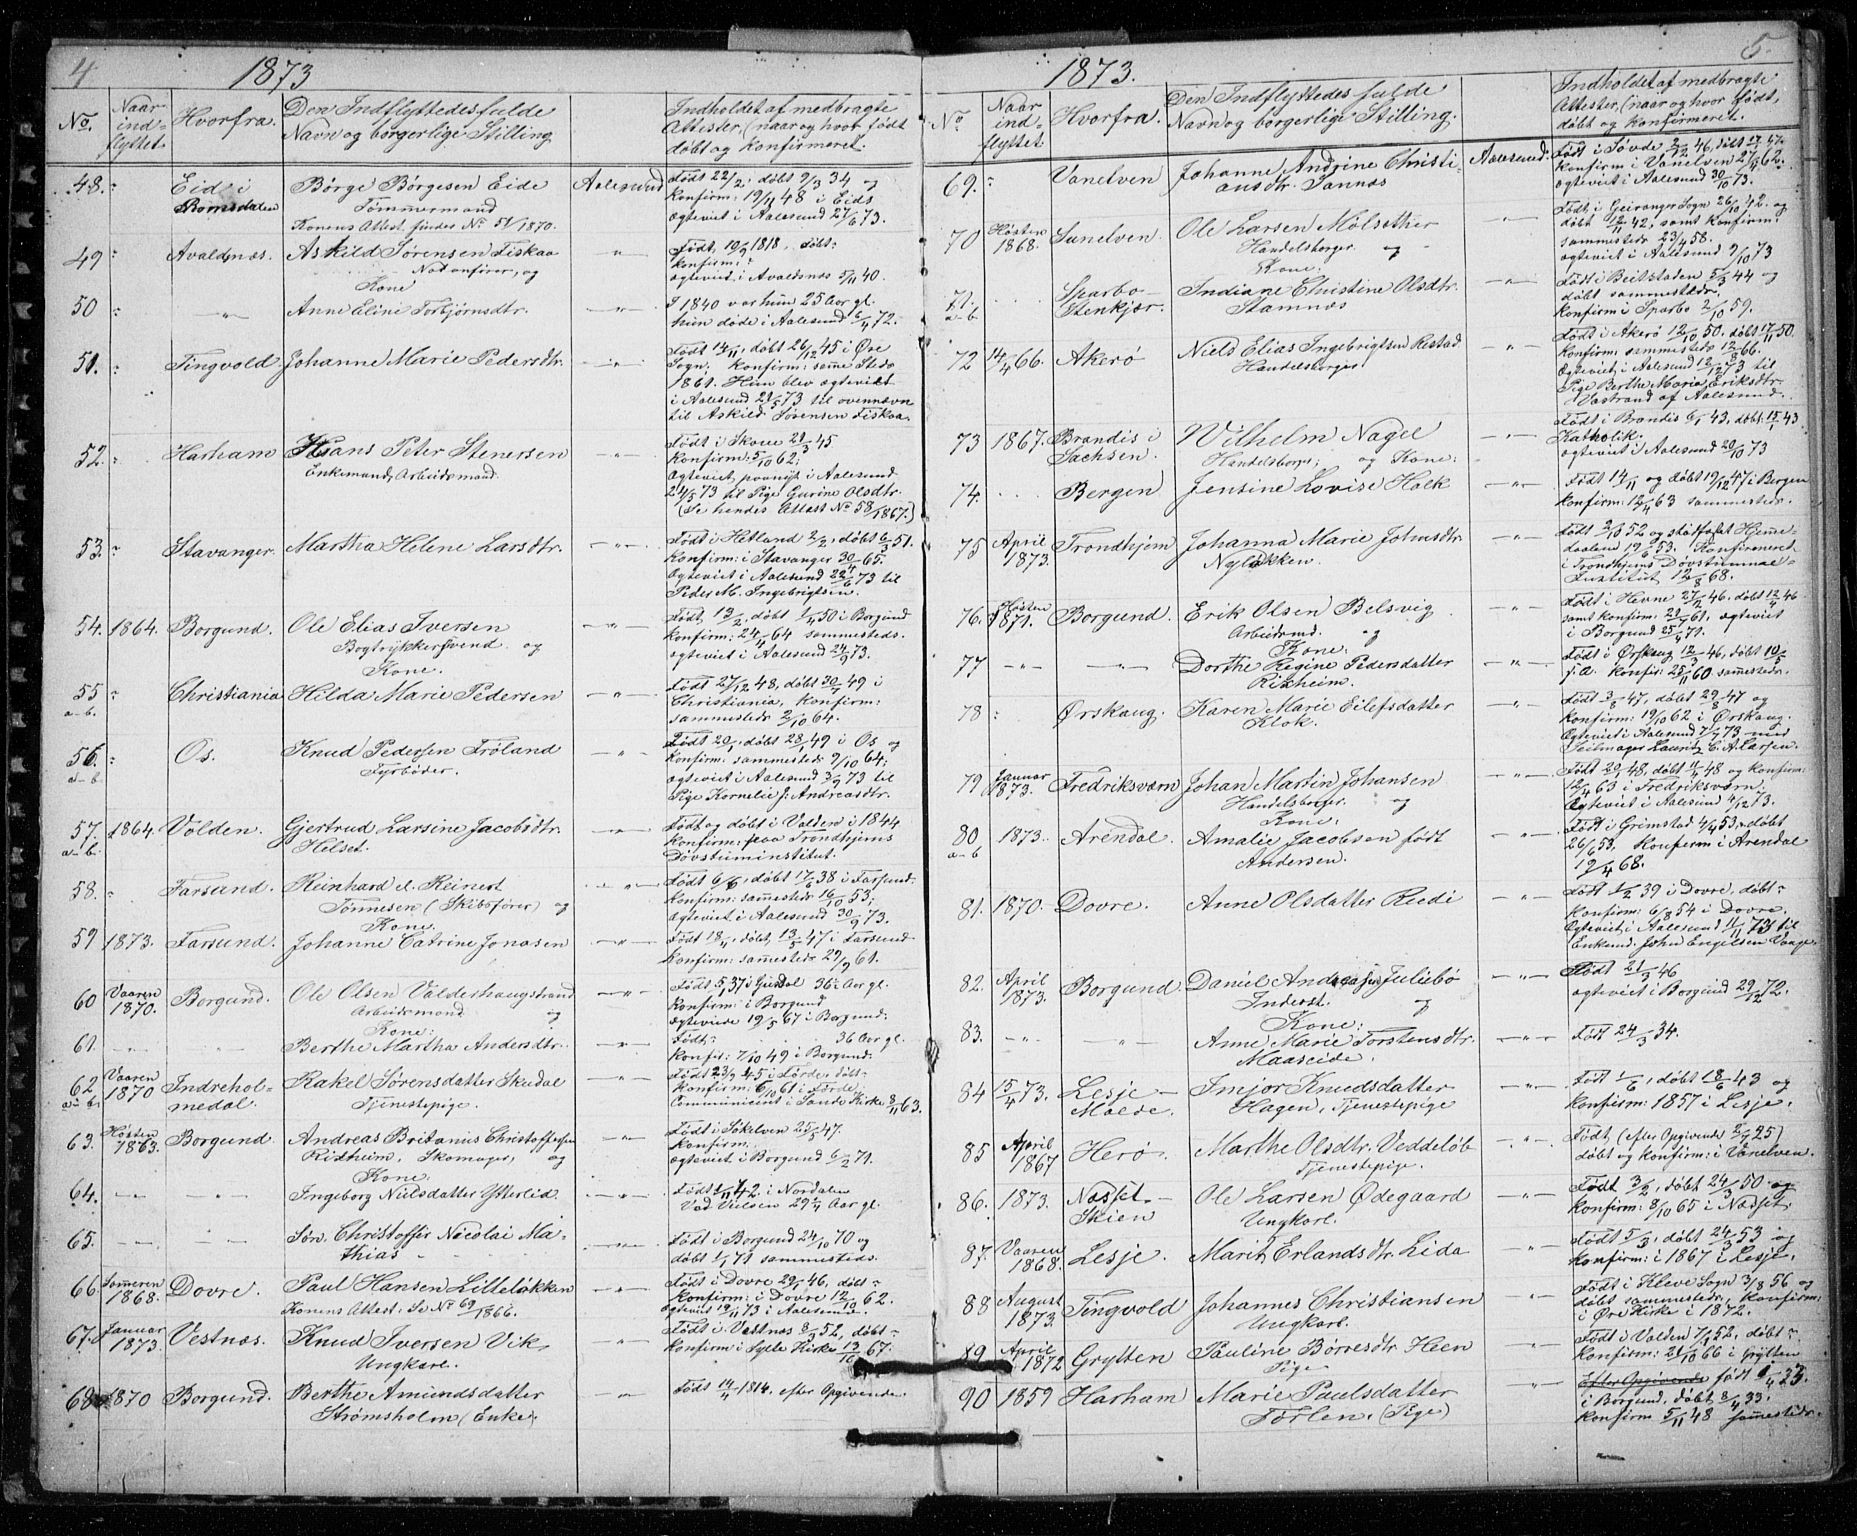 4
1873
No.
Naar
ind-
flyttet.
Hvorfra.
Den Indflyttedes fulde
Navn og borgerlige Stilling
Indholdet af medbragte
Attester, (naar og hvor født
døbt og konfirmeret.
48.
Eid i
Romsdalen
Børge Børgesen Eide
Tømmermand
Konens Attest findes No 51/1870.
Aalesund
Født 22/2, døbt 9/3 34 og
konfirm: 19/11 48 i Eids
ægteviet i Aalesund 27/6 73.
49
Avaldsnæs.
Askild Sørensen Fiskaa
Notenfører, og
Kone
Født 10/9 1818, døbt
konfirm:
ægteviet i Avaldsnæs 5/11 40.
50
Anne Eline Torbjørnsdtr.
I 1840 var hun 25 Aar gl.
hun døde i Aalesund 6/4 72.
51.
Tingvold
Johanne Marie Pedersdtr.
Født 14/11, døbt 26/12 45 i Øre
Sogn, konfirm: samme Sted
1861. Hun blev ægteviet
i Aalesund 21/5 73 til ovennævn
til Askild Sørensen Fiskaa.
52.
Harham
Hans Peter Stenersen
Enkemand, Arbeidsmand.
Født i Skone 21/3 45
Konfirm: 5/10 62;
Ægteviet paanyt i Aalesund
24/5 73 til Pige Gurine Olsdtr.
(Se hendes Attest No 58/1867.)
53.
Stavanger.
Martha Helene Larsdtr.
Født i Hetland 2/2, døbt 6/3 51.
konfirm: i Stavanger 30/4 65.
Ægteviet i Aalesund 22/6 73 til
Peder M. Ingebrigtsen.
54.
1864.
Borgund.
Ole Elias Iversen
Bogtrykkersvend. og
Kone
Født 13/2, døbt 1/4 50 i Borgund
konfirm: 24/4 64 sammesteds.
ægteviet i Aalesund 24/9 73.
55
a-b.
Christiania
Hilda Marie Pedersen
Født 27/12 48, døbt 30/4 49 i
Christiania, konfirm:
sammesteds 2/10 64.
56.
a-b
Os.
Knud Pedersen Frøland
Fyrbøder.
Født 20/1, døbt 28/1 49 i Os og
konfirm: sammesteds 9/10 64;
ægteviet i Aalesund 3/9 73 til
Pige Kornelie J: Andreasdtr.
57.
a-b.
1864.
Volden.
Gjertrud Larsine Jacobsdtr.
Helset.
Født og døbt i Volden i 1844
konfirm: paa Trondhjems
Døvstuminstitut.
58.
Farsund.
Reinhard el. Reinert
Tønnesen (Skibsfører) og
Kone.
Født 6/6, døbt 17/6 38 i Farsund.
konfirm: sammesteds 16/10 53;
ægteviet i Aalesund 30/9 73.
59
1873.
Farsund.
Johanne Catrine Jonasen
Født 18/4, døbt 13/5 47 i Farsund
konfirm: sammesteds 29/9 61.
60
Vaaren
1870.
Borgund.
Ole Olsen Valderhaugstrand
Arbeidsmand og
Kone:
konfirm: i Borgund
ægteviede 19/5 67 i Borgund:
61.
Berthe Martha Andersdtr.
Født: 36 Aar gl.
konfir: 7/10 49 i Borgund.
62
a-b.
Vaaren
1870
Indrehol-
medal.
Rakel Sørensdatter Skudal
Tjenestepige.
Født 23/3 45 i Førde, døbt-
konfirm: 6/10 61 i Førde:
Communicent i Sande Kirke 8/11 63.
63.
Høsten
1863.
Borgund
Andreas Britanus Christoffersen
Rixheim. Skomager, og
Kone
Født i Søkelven 25/5 47.
konfirm.
ægteviet i Borgund 6/2 71.
64.
Ingeborg Nielsdatter Ytterlid.
Født 1/11 42 i Nordalen
Ved Vielsen 29 1/4 Aar gl.
65.
Søn. Christoffer Nicolai Ma-
thias
Født i Borgund 24/10 70 og
døbt 1/1 71 sammesteds.
66.
Sommeren
1868.
Dovre.
Paul Hansen Lilleløkken
Konens Attest: Se No 69/1866.
Født i Dovre 29/1 46, døbt
konfirm: i Dovre 12/10 62.
ægteviet 19/11 73 i Aalesund.
67.
Januar
1873
Vestnæs.
Knud Iversen Vik,
Ungkarl.
Født i Vestnæs 8/3 52, døbt-
konfirm i Sylte Kirke 13/10 67.
68
1870
Borgund.
Berthe Amundsdatter
Strømsholm (Enke).
Født 14/4 1814. efter Opgivende.
5.
1873.
No
Naar
ind-
flyttet
Hvorfra.
Den Indflyttedes fulde
Navn og borgerlige Stilling.
Indholdet af medbragte
Attester, (naar og hvor født,
døbt og konfirmeret.
69.
Vanelven
Johanne Andrine Christi-
ansdtr. Sannæs
Aalesund.
konfirm i Vanelven 27/4 62.
ægteviet i Aalesund 30/10 73.
70
Høsten
1868.
Sunelven.
Ole Larsen Molsether
Handelsborger. og
Kone.
Født i Geiranger Sogn 26/10 42. og
døbt 12/11 42, samt konfirm:
sammesteds 23/4 58.
ægteviet i Aalesund 9/10 73
71.
a-b
Sparbo-
Stenkjær.
Indiane Christine Olsdtr.
Stamnæs
Født i Beitstaden 5/3 44 og
døbt sammesteds.
konfirm i Sparbo 2/10 59.
72
14/4 66.
Akerø
Niels Elias Ingebrigtsen Restad
Handelsborger
Født i Akerø 12/10 50, døbt 17/11 50
konfirm: sammesteds 12/8 66.
ægteviet i Aalesund 12/12 73 til
Pige Berthe Maria Eriksdtr.
Vestrand af Aalesund.
73
1867.
Brandis i
Sachsen.
Wilhelm Nagel
Handelsborger; og Kone:
Født i Brandis 6/1 43, døbt 15/1 43
Katholik.
ægteviet i Aalesund 20/10 73
74.
Bergen
Jensine Lovise Holk
Født 14/11 og døbt 19/12 47 i Bergen
konfirm: 12/4 63 sammesteds.
75
April
1873.
Trondhjem
Johanna Marie Johnsdtr.
Nyløkken.
Født 3/10 52 og stadfæstet Hjemme-
daaben 19/6 53. Konfirmeret
i Trondhjems Døvstumme-
Institut 12/8 68.
76.
Høsten
1871.
Borgund.
Erik Olsen Belsvig
Arbeidsmd. og
Kone:
Født i Hevne 27/2 46, døbt 12/4 46
samt konfirm: 21/7 61, ægteviet
i Borgund 25/4 71.
77
Dorthe Regine Pedersdatter
Rixheim.
Født i Ørskaug 12/3 46, døbt 10/5
s. A. konfir: 25/11 60 sammesteds.
78
Ørskaug.
Karen Marie Eilefsdatter
Klok.
Født 3/8 47, døbt 29/8 47 og
konfirm: 19/10 62 i Ørskaug.
Ægteviet i Aalesund 7/9 73 med
Seilmager Lauritz C. A. Larsen.
79
Januar
1873.
Fredriksværn
Johan Martin Johansen
Handelsborger. og
Kone:
Født 20/1 48, døbt 11/4 48 og konfirm:
12/4 63 i Fredriksværn;
Ægteviet i Aalesund 4/12 73.
80
a-b
1873.
Arendal.
Amalie Jacobsen født
Andersen.
Født i Grimstad 4/4 53, døbt
26/6 53. konfirm i Arendal
19/4 68.
81.
1870.
Dovre.
Anne Olsdatter Rudi
Født 1/2 39 i Dovre, døbt-
konfirm: 6/8 54 i Dovre.
Ægteviet i Aalesund 11/11 73 til
Enkemd: John Engelsen Vaage.
82.
April
1873.
Borgund.
Daniel Andreassen Juliebø
Inderst. og
Kone:
Født 21/3 46
ægteviet i Borgund 29/12 72.
83.
Anne Marie Torstensdtr.
Maaseide.
Født 24/3 34.
84
15/4 73.
Lesje-
Molde.
Imjor Knudsdatter
Hagen, Tjenestepige
Født 1/6, døbt 18/6 43 og
konfirm: 1857 i Lesje.
85
April
1867
Herø.
Marthe Olsdtr. Veddeløb
Tjenestepige.
Født, (efter Opgivende 2/7 25)
døbt og konfirm: i Vanelven.
86.
1873.
Næsset-
Skien
Ole Larsen Ødegaard
Ungkarl.
Født 3/2, døbt 24/3 50 og
konfirm: 8/10 65 i Næsset.
87.
Vaaren
1868.
Lesje.
Marit Erlandsdtr. Lida
Født 5/3, døbt 24/3 53 og
konfirm: i 1867 i Lesje.
88
August
1873.
Tingvold
Johannes Christiansen
Ungkarl.
Født i Kleve Sogn 3/8 56 og
døbt sammesteds, konfirm:
i Øre Kirke i 1872.
89
April
1872
Grytten
Pauline Børresdtr. Heen
Pige
Født i Volden 7/4 52, døbt-
konfirm: 21/10 66 i Grytten
90
1859
Harham
Marie Paulsdatter
Førlen. (Pige)
Efter Opgivende født 1/4 33.
i Borgund, døbt 8/4 33.
konfirm 5/11 48 sammesteds.